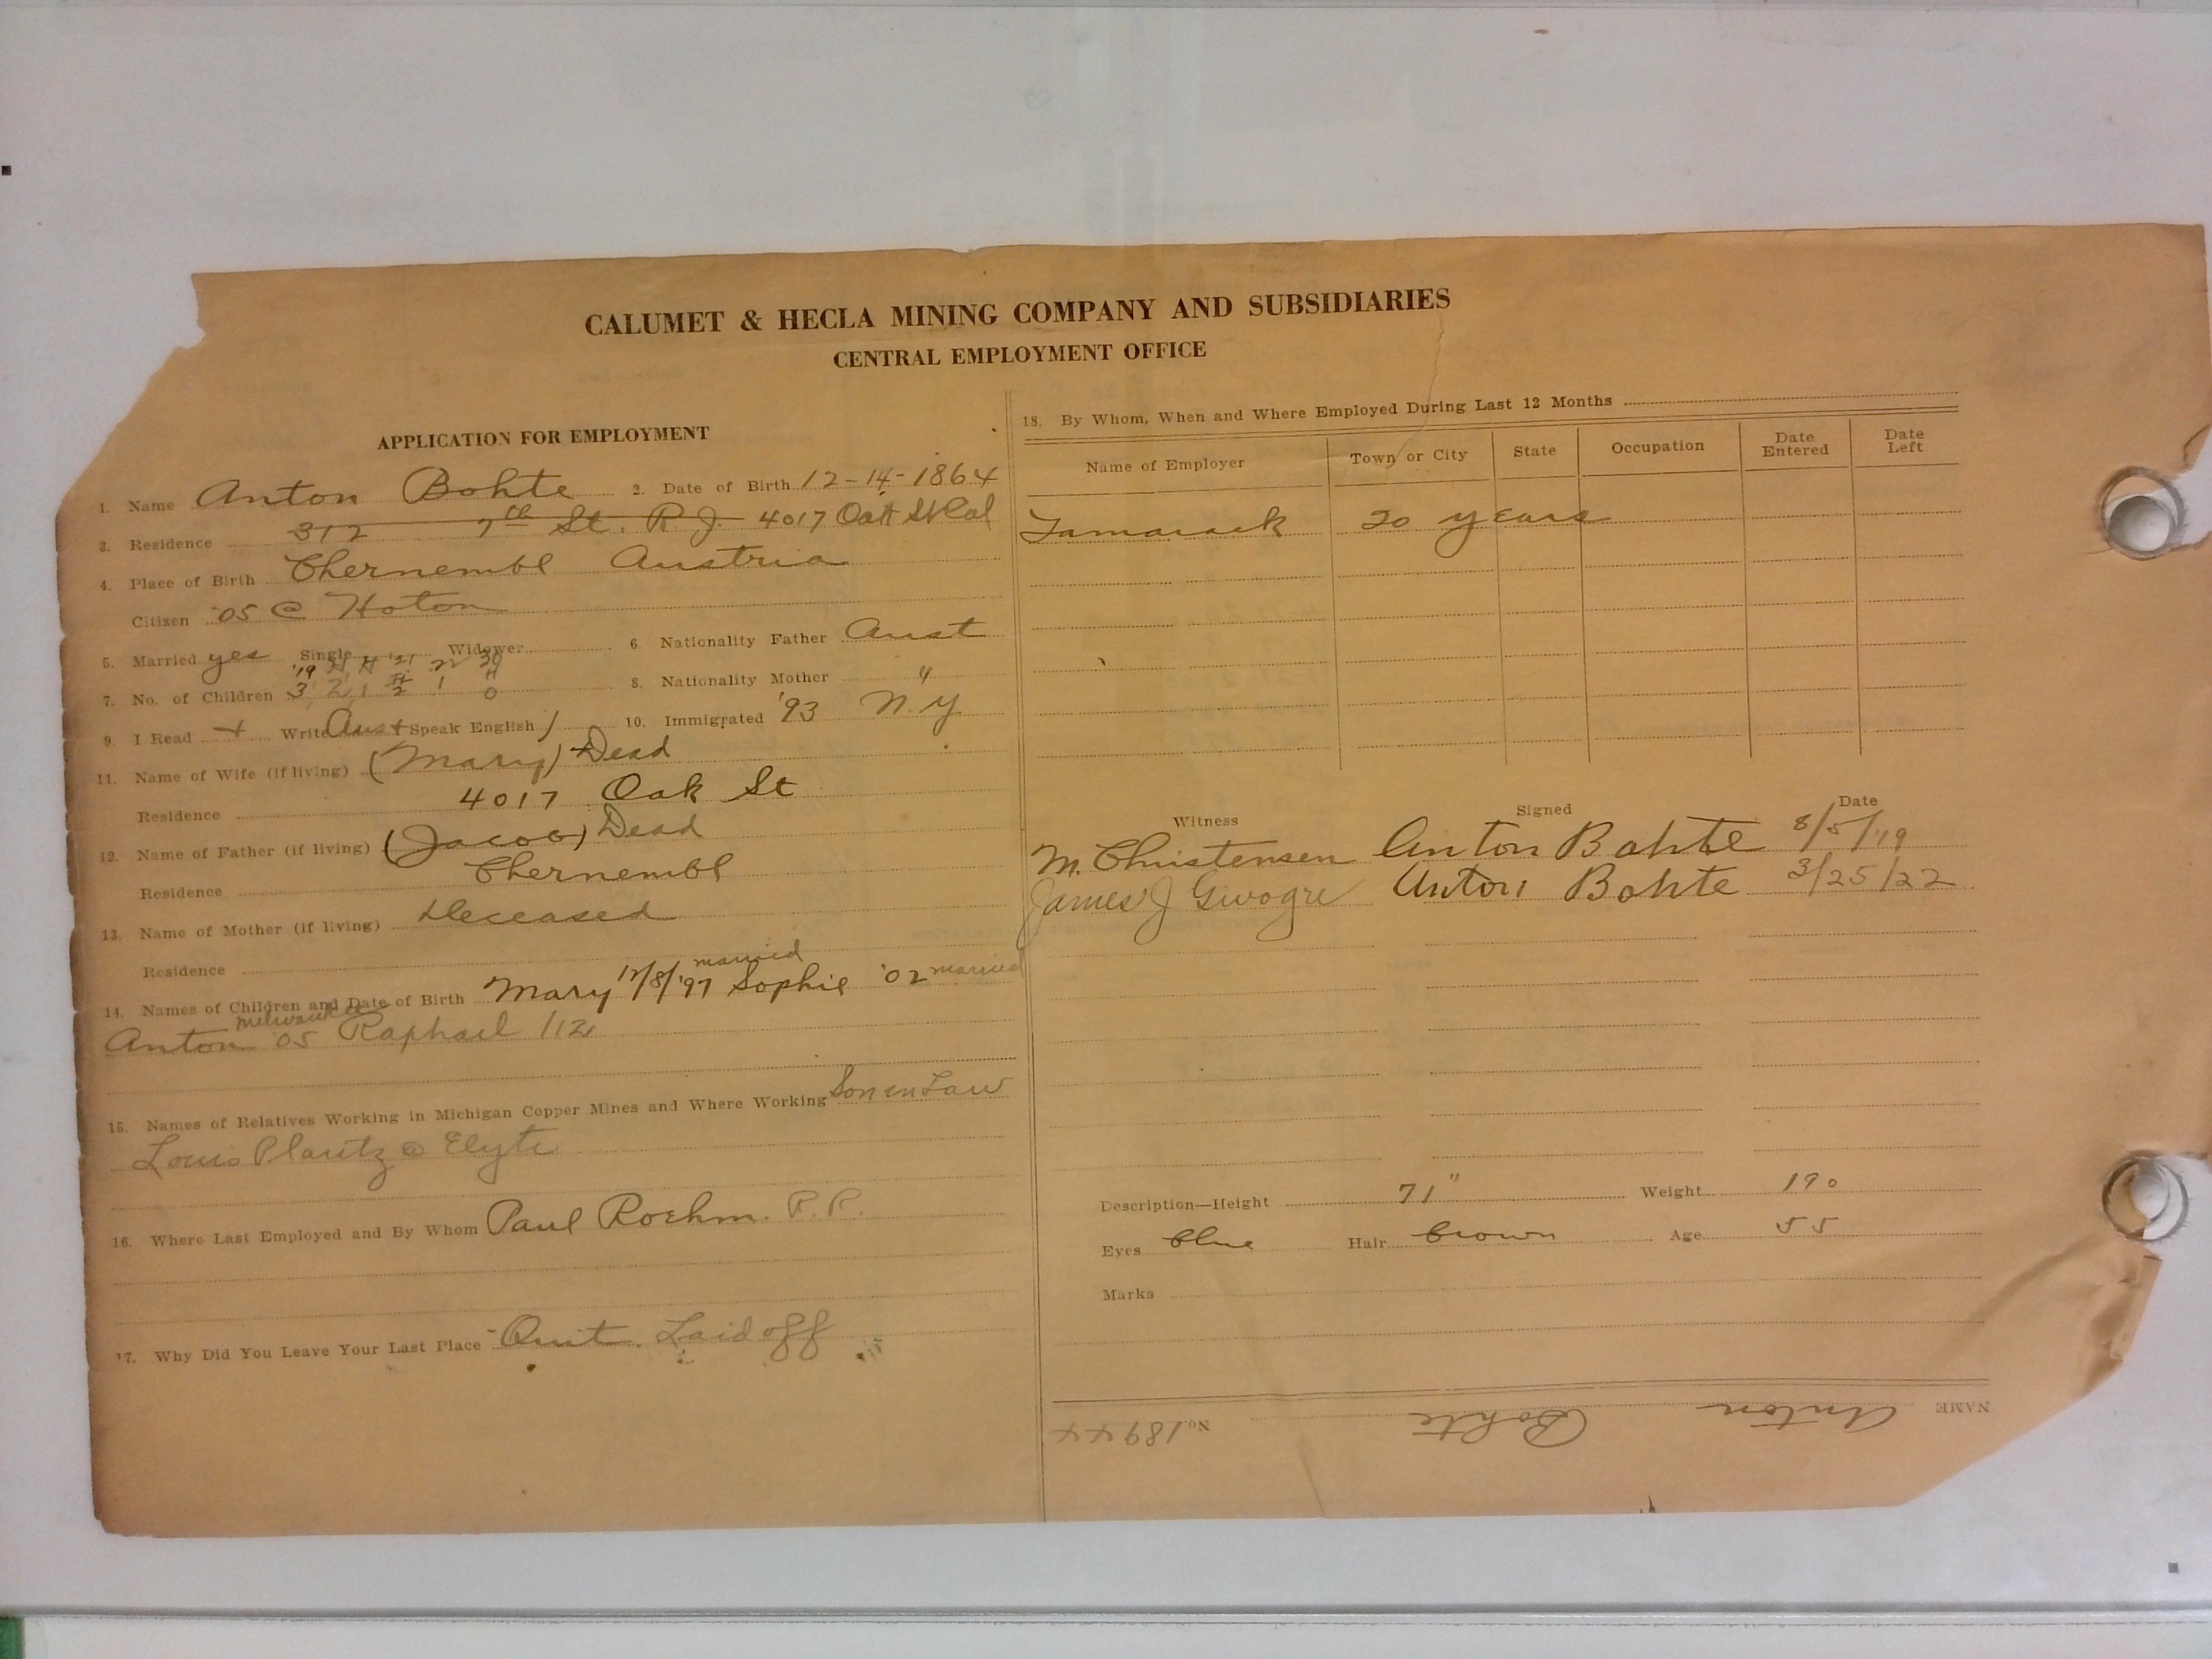 CALUMET & HECLA MINING COMPANY AND SUBSIDIARIES
CENTRAL EMPLOYMENT OFFICE
APPLICATION FOR EMPLOYMENT
1. Name Anton Bohte 2. Date of Birth 12-14-1864
3. Residence 312 7th St. R.J. 4017 Oak St Cal
4. Place of Birth Chernembl Austria
Citizen '05 @ Hoton
5. Married yes Single Widower
6. Nationality Father Aust
'19 '21 22
7. No. of Children 3 2 1 2 1 0
8. Nationality Mother "
9. I Read + Write Aust Speak English /
10. Immigrated '93 N.Y
11. Name of Wife (if living) (Mary) Dead
Residence 4017 Oak St
12. Name of Father (if living) (Jacob) Dead
Residence Chernembl
13. Name of Mother (if living) Deceased
Residence
married
14. Names of Children and Date of Birth Mary 12/8/'97 Sophie '02 married
Milwaukee
Anton '05 Raphael /12
15. Names of Relatives Working in Michigan Copper Mines and Where Working Son in Law
Louis Plautz @ Elyte
16. Where Last Employed and By Whom Paul Roehm. R.R.
17. Why Did You Leave Your Last Place Quit. Laid off
18. By Whom, When and Where Employed During Last 12 Months
Name of Employer Town or City State Occupation Date Entered Date Left
Tamarack 20 years
Witness Signed Date
M. Christensen Anton Bohte 8/5/19
James J Anton Bohte 3/25/22
Description—Height 71" Weight 190
Eyes blue Hair brown Age 55
Marks
NAME Anton Bohte No. 18944